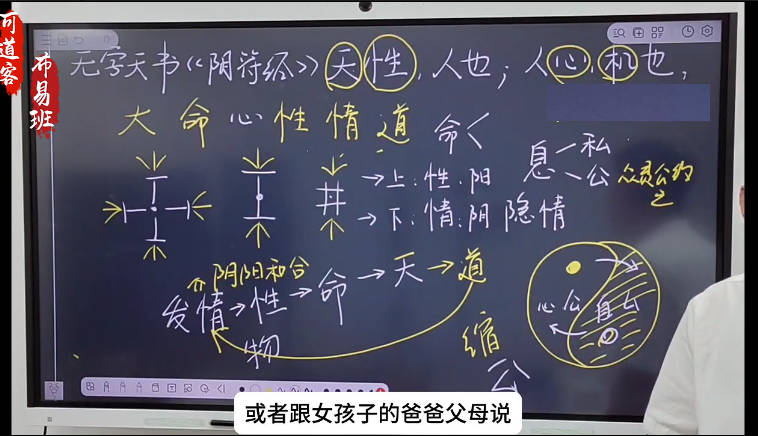 可道客
布易班
无字天书《阴符经》天性,人也;人心,机也,
大 命 心 性 情 道 命
息 私
公
众灵公约
→上:性:阳
→下:情:阴 隐情
阴阳和合
发情→性→命→天→道
物
心 公
自
缩
公
或者跟女孩子的爸爸父母说